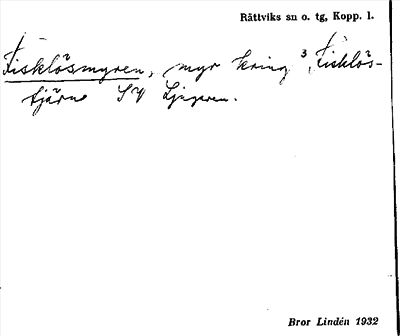 Rättviks sn o. tg, Kopp. l.
Fisklösmyren, myr kring 3 Fisklös-
tjärne SV Ljugaren.
Bror Lindén 1932